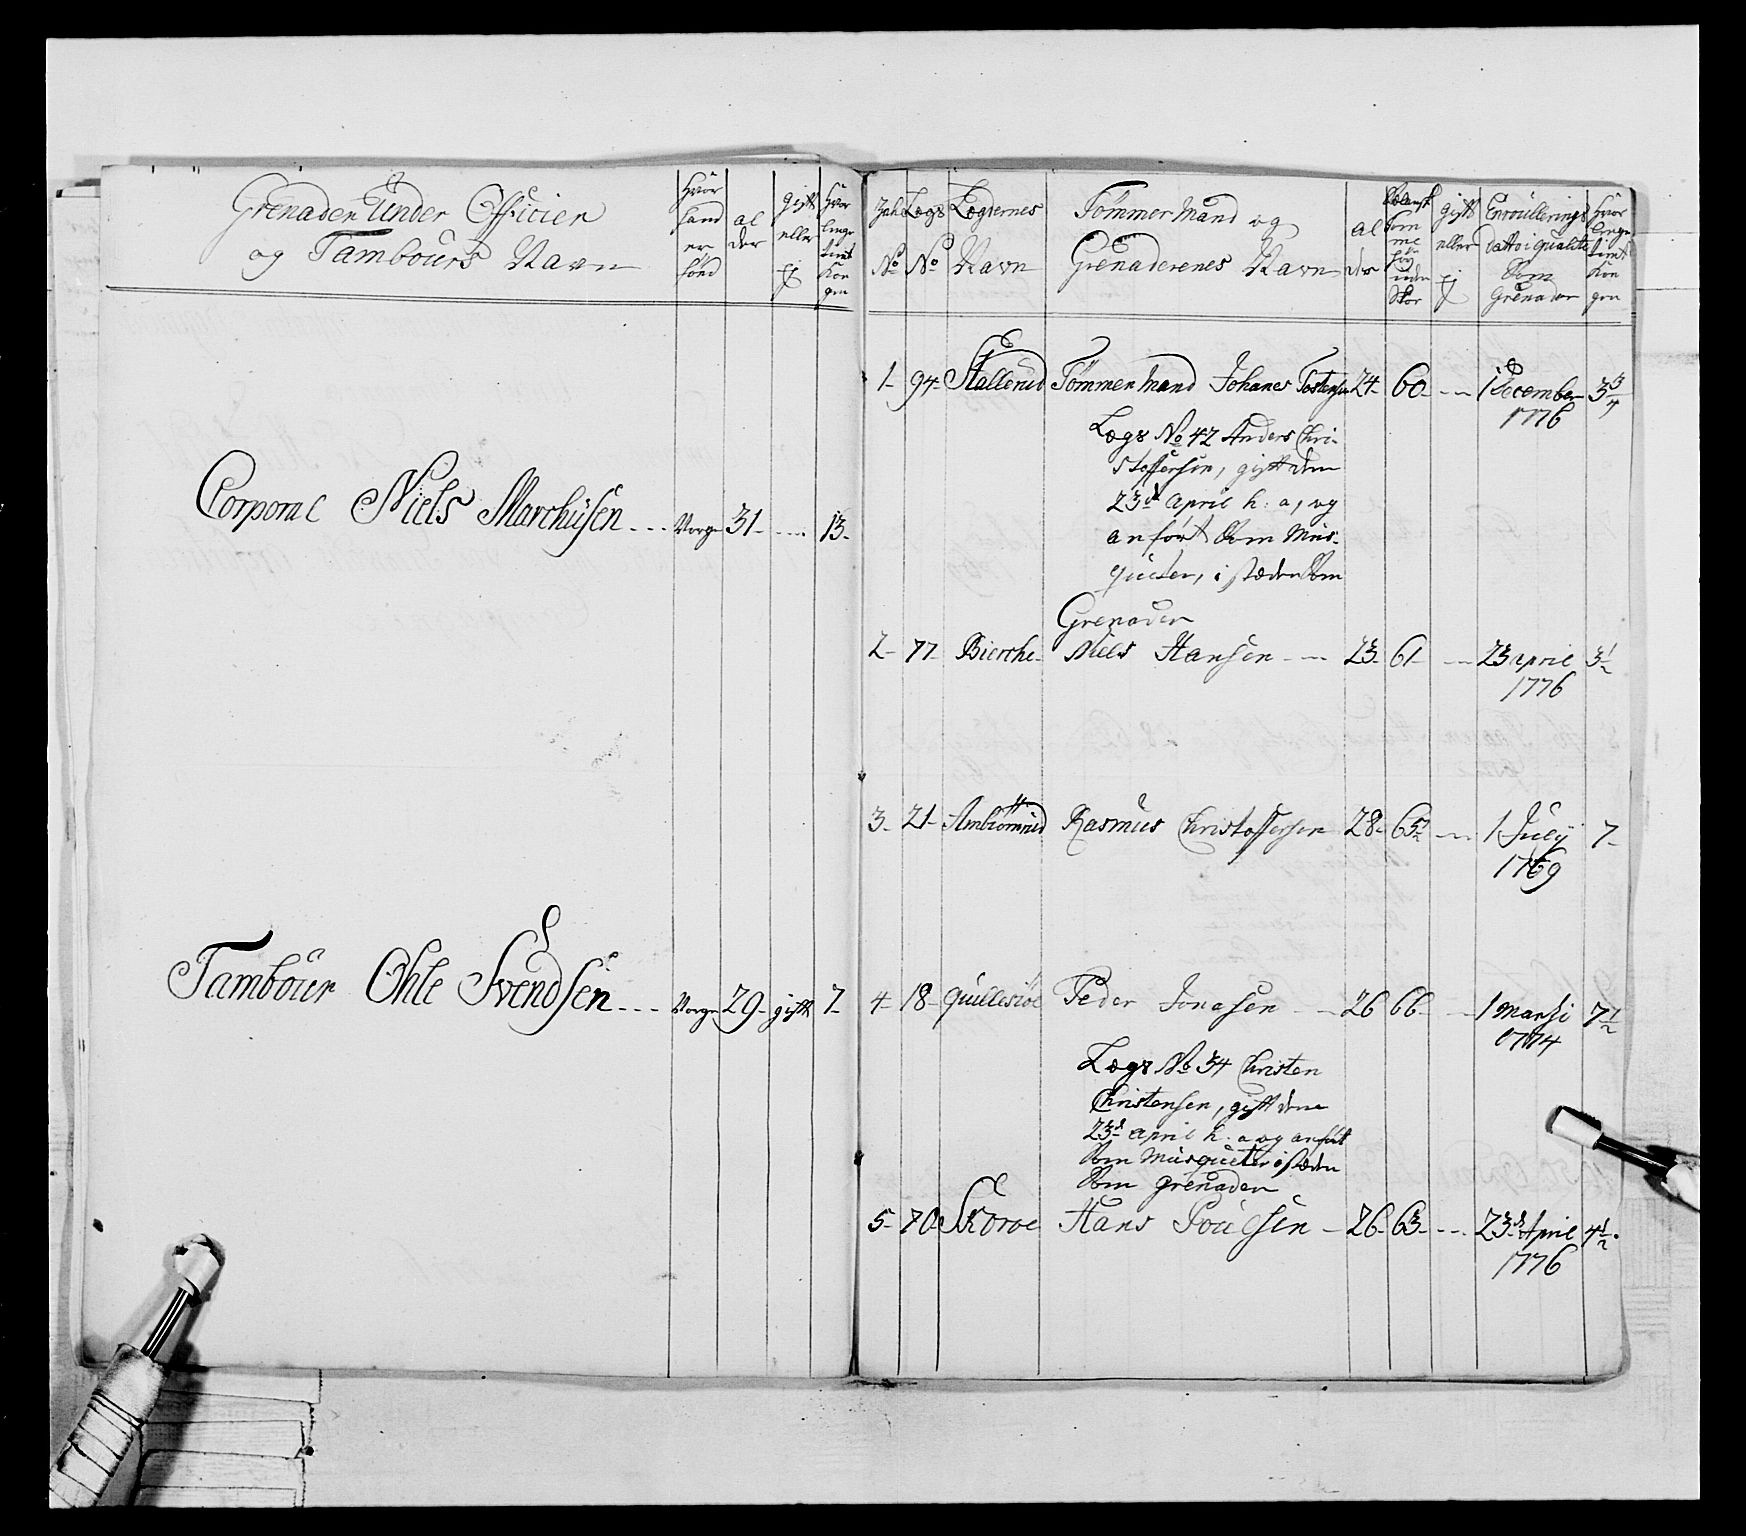 Grenader Under Officier
og Tambours Navn
hvor
hand
er
født
al
der
gift
eller
ej
hvor
lenge
tient
Kon
gen
Corporal Niels Marchusen --- Norge 31 - --- 13 -
Tambour Ohle Svendsen --- Norge 29 - gift 7 -
Lægs Lægernes Tømmer Mand og
No No Navn Grenaderenes Navn
al
der
gift
eller
ej
Enroullerings
Datto i qualité
Som
Grenader
hvor
lenge
tient
Kon
gen
1 - 94 - Stallerud Tømmer Mand Johanes Tostensen 24 - 60 - --- 1 December 3 3/4
1776
Lægs No 42 Anders Chri-
stoffersen, gift den
23d april h: a, og
anført Som Mus-
queter, i stæden Som
Grenader
2 - 77 - Bierche - Niels Hansen --- 23 - 61 - --- 23 april 3 1/2
1776
3 - 21 - Rasmus Christoffersen 28 - 65 1/2 --- 1 July 7 -
1769
4 - 18 - Peder Jonasen --- 26 66 - --- 1 Martii 7 1/2
1774
Lægs No 34 Christen
Christensen, gift den
23d april h: a og anført
Som Musqueter i stæden
Som Grenader
5 - 70 Skoroe Hans Poulsen - 26 - 63 - --- 23d April 4 1/2
1776